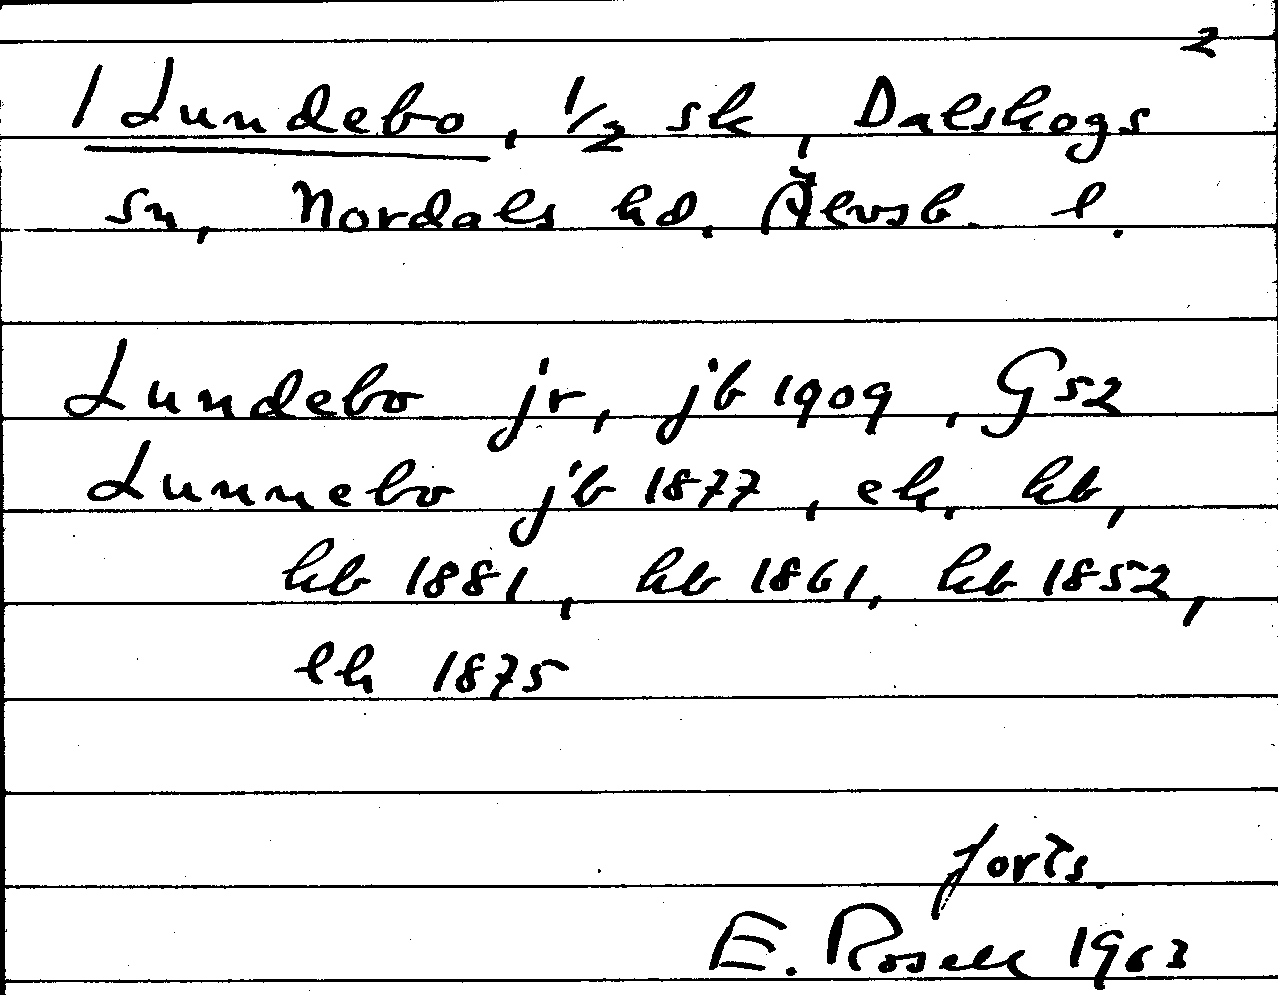 2
1 Lundebo, 1/2 sk, Dalskogs
sn, Nordals hd, Älvsb. l.
Lundebo jr, jb 1909, G52
Lunnebo jb 1877, ek, kb,
hb 1881, hb 1861, hb 1852,
lh 1875
forts.
E. Rosell 1963